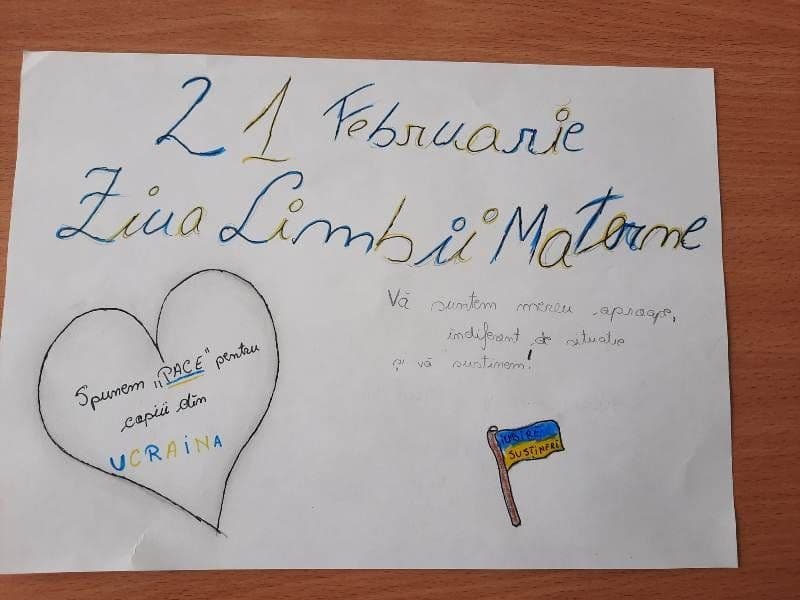 21 Februarie
Ziua Limbii Materne
Vă suntem mereu aproape,
indiferent de situație
și vă susținem!
Spunem „PACE" pentru
copiii din
UCRAINA
IUBIRE
SUSTINERI